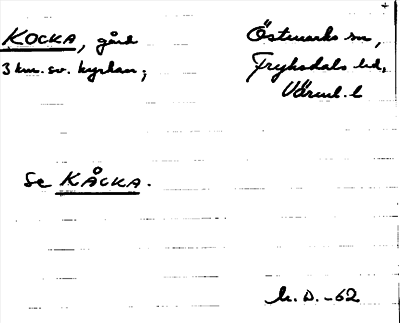 KOCKA, gård
3 km. sv. kyrkan;
Östmarks sn,
Fryksdals hd,
Värml. l
Se KÅCKA.
M. D. -62